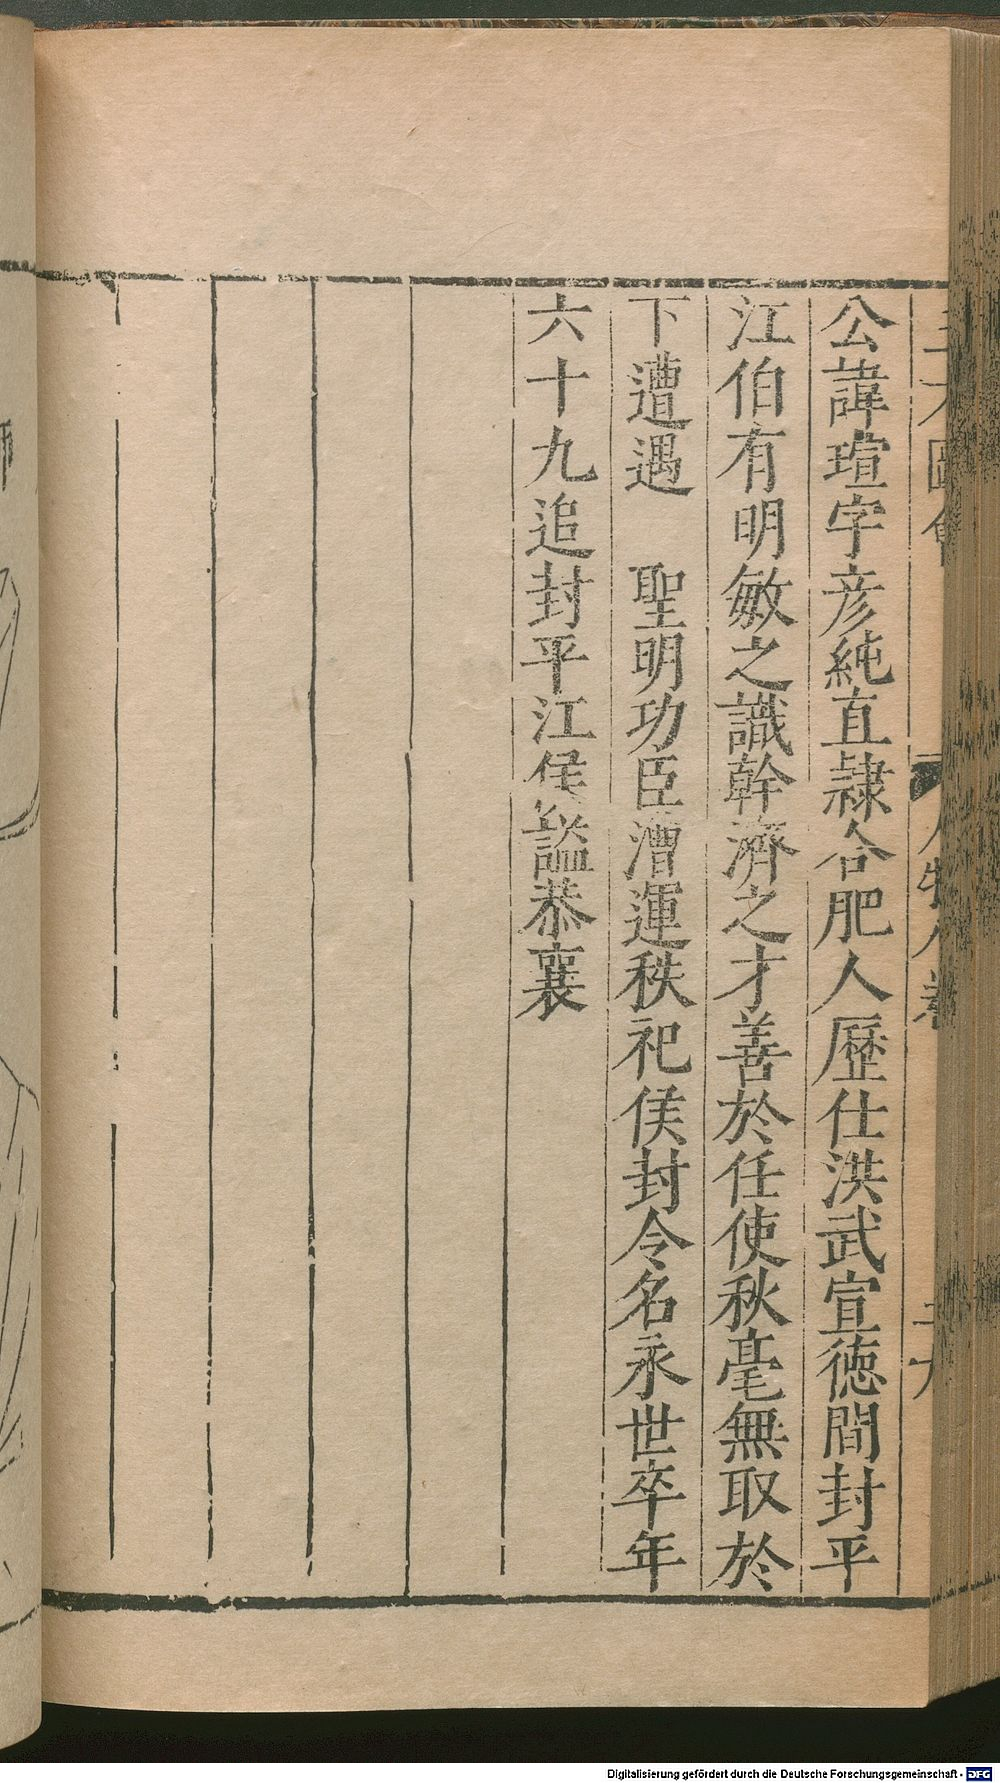 公諱瑄字彦純直隷合肥人歷仕洪武宣德間封平
江伯有明敏之識幹濟之才善於任使秋毫無取於
下遭遇　聖明功臣漕運秩祀侯封令名永世卒年
六十九追封平江侯謚恭襄
Digitalisierung gefördert durch die Deutsche Forschungsgemeinschaft - DFG